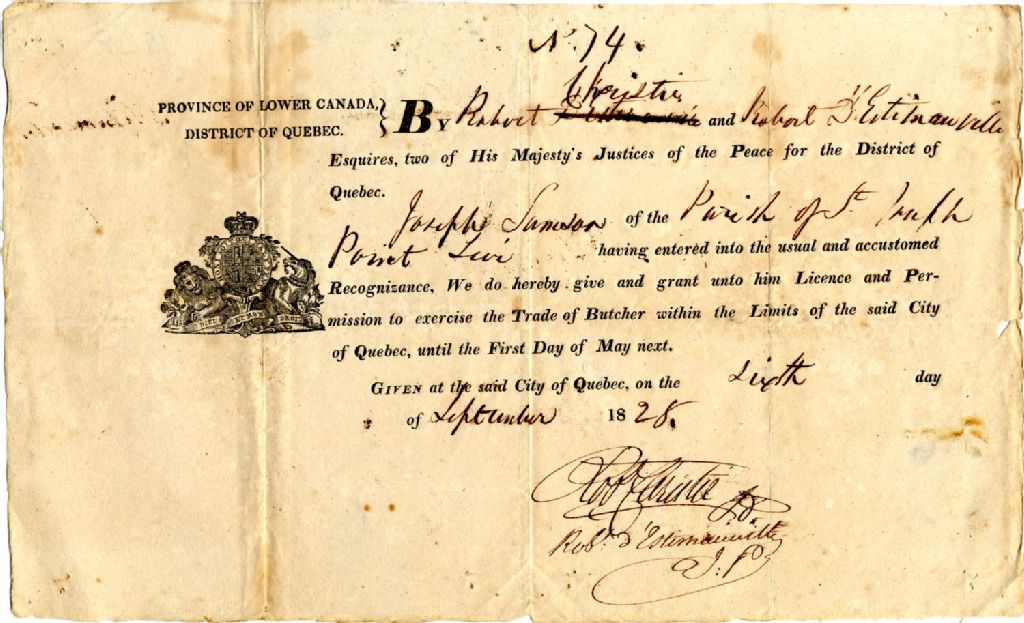 No. 74.
Christie
PROVINCE OF LOWER CANADA,
DISTRICT OF QUEBEC.
BY Robert and Robert D'Estimauville
Esquires, two of His Majesty's Justices of the Peace for the District of
Quebec.
Joseph Samson of the Parish of St Joseph
Point Levi having entered into the usual and accustomed
Recognizance, We do hereby give and grant unto him Licence and Per-
mission to exercise the Trade of Butcher within the Limits of the said City
of Quebec, until the First Day of May next.
GIVEN at the said City of Quebec, on the Sixth day
of September 1828.
Robt Christie J.P.
Robt. D'Estimauville
J. P.